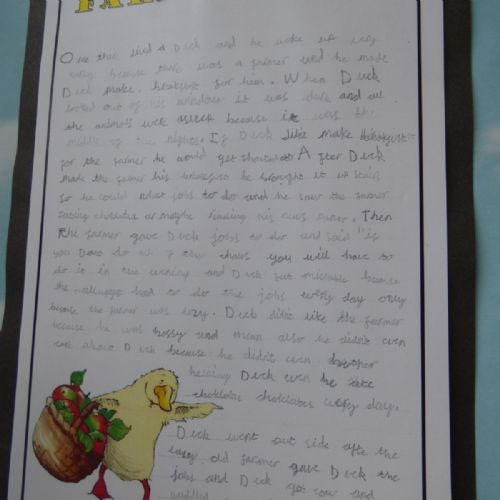 FA
Once there lived a Duck and he woke up very
early because there was a farmer and he made
Duck make breakfast for him. When Duck
looked out of his window it was dark and all
the animals were asleep because it was the
middle of the night. If Duck didnt make
for the farmer he would get shouted at. After Duck
made the farmer his he brought it up stairs
so he could what jobs to do and he saw the farmer
eating chocolates or maybe reading his news paper. Then
the farmer gave Duck jobs to do and said "if
you Dont do all of the you will have to
do it in the evening and Duck felt miserable because
he had to do the jobs every day only
because the farmer was lazy. Duck didnt like the farmer
because he was bossy and mean also he didn't even
care about Duck because he didn't even bother
helping Duck even he ate
chocolates every day.
Duck went out side after the
lazy old farmer gave Duck the
jobs and Duck saw and